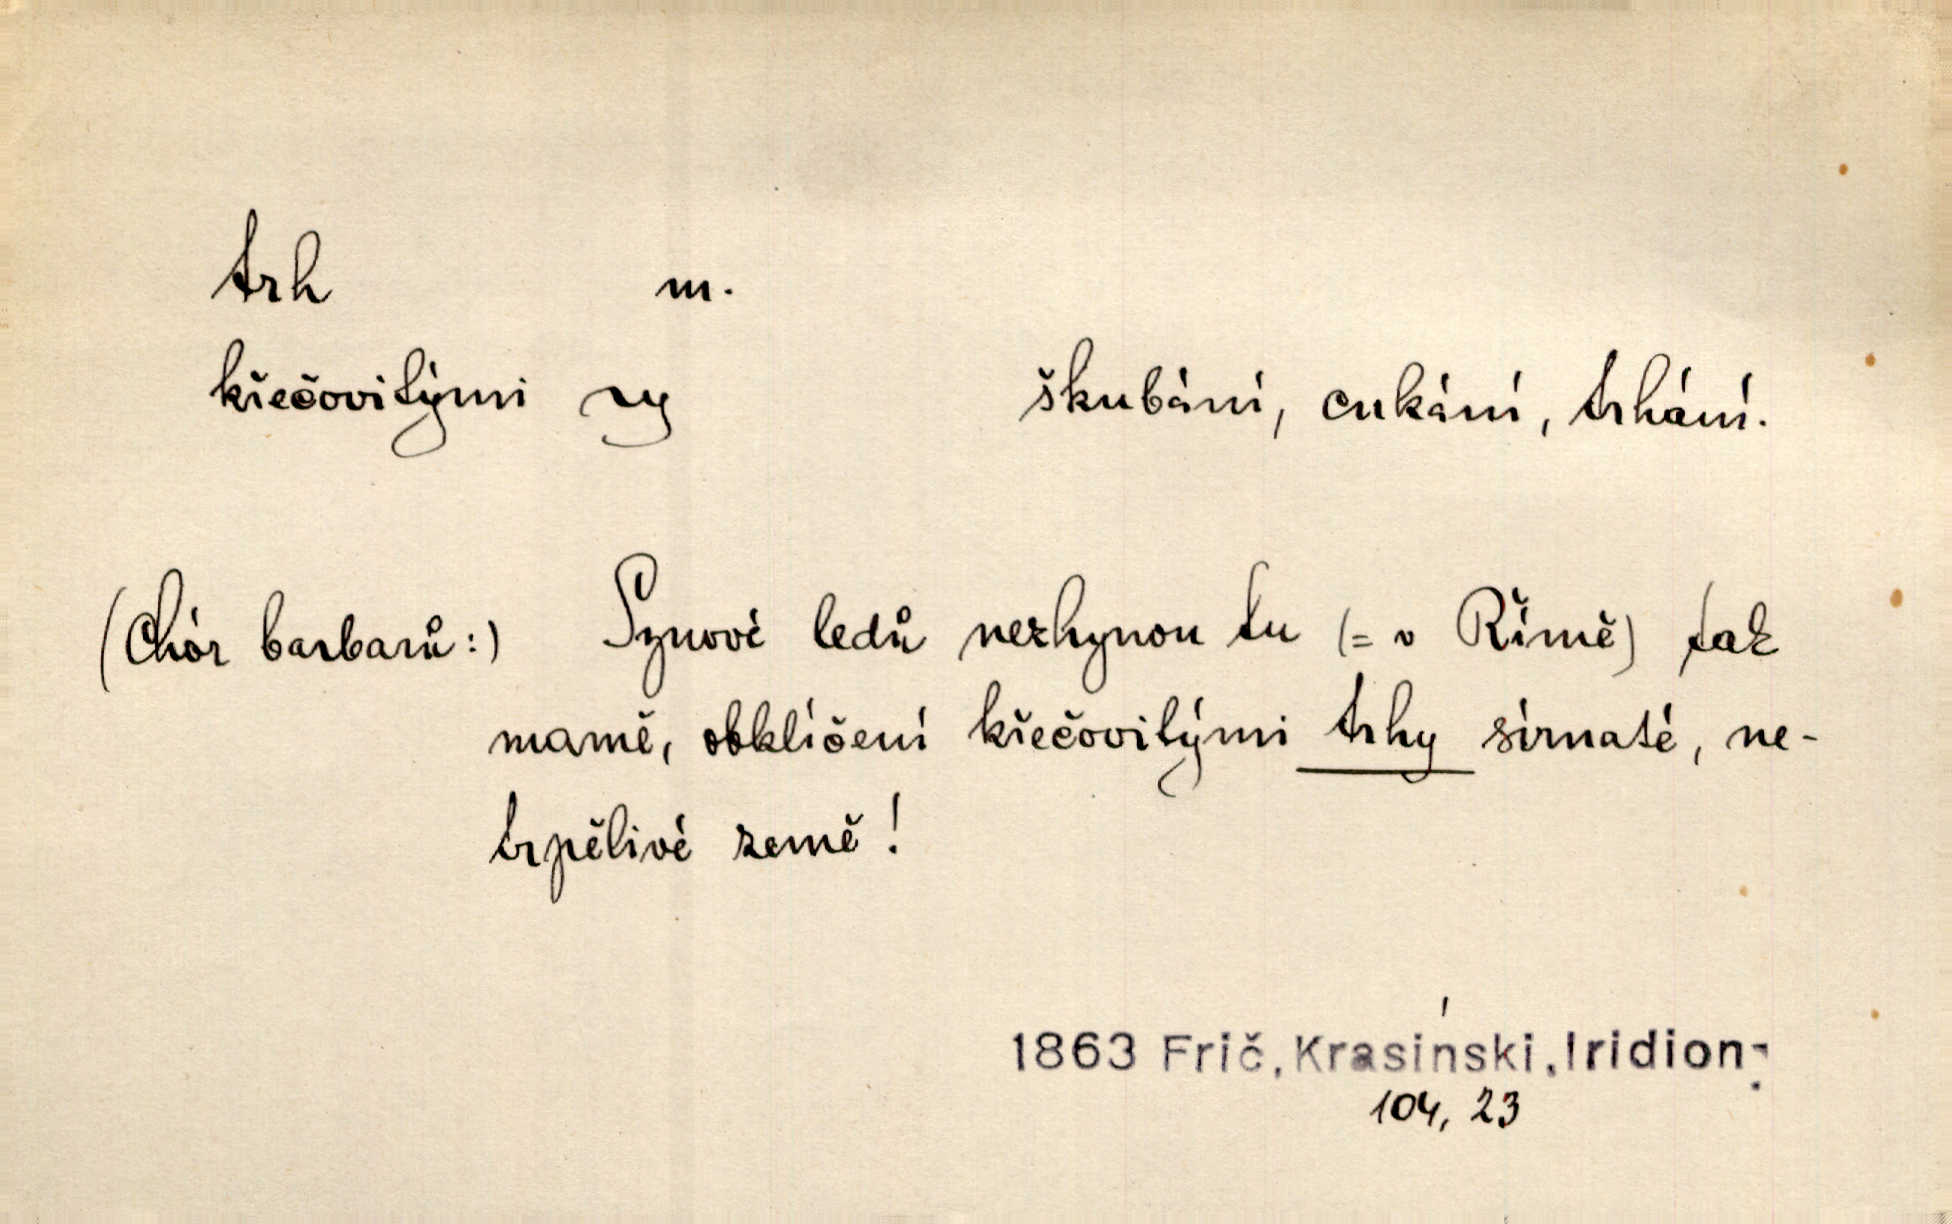 trh m.
křečovitými ~y škubání, cukání, trhání.
(Chór barbarů:) Synové ledů nezhynou tu (= v Římě) tak
marně, obklíčeni křečovitými trhy sírnaté, ne-
trpělivé země!
1863 Frič, Krasiński, Iridion
104, 23